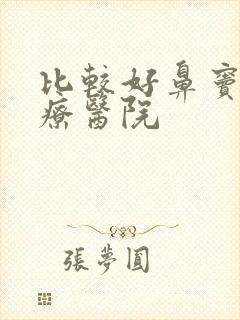 比較好鼻竇
療醫院
張夢圓